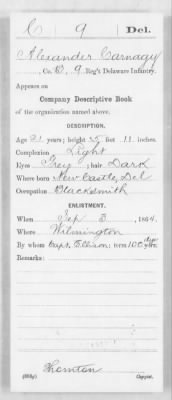 C 9 Del.
Alexander Carnagy
, Co. D, 9 Reg't Delaware Infantry.
Appears on
Company Descriptive Book
of the organization named above.
DESCRIPTION.
Age 21 years; height 5 feet 11 inches.
Complexion Light
Eyes Grey; hair Dark
Where born New Castle, Del
Occupation Blacksmith
ENLISTMENT.
When Sep 3, 1864.
Where Wilmington
By whom Capt. Ellison; term 100 days
Remarks:
Thornton
Copyist.